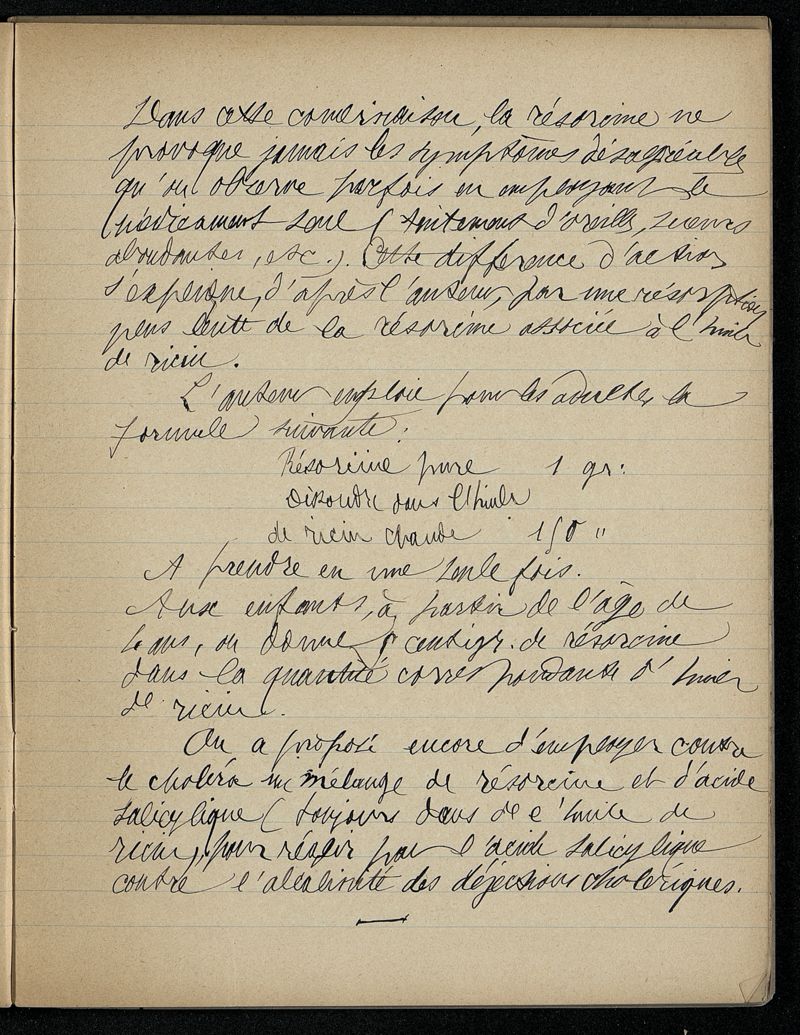 Dans cette combinaison, la résorcine ne
provoque jamais les symptômes désagréables
qu'on observe parfois en employant le
médicament seul (tintement d'oreilles, sueurs
abondantes, etc.). Cette différence d'action
s'explique, d'après l'auteur, par une résorption
plus lente de la résorcine associée à l'huile
de ricin.
L'auteur emploie pour les adultes la
formule suivante :
Résorcine pure 1 gr.
Dissoudre dans l'huile
de ricin chaude 150 "
A prendre en une seule fois.
Aux enfants, à partir de l'âge de
ans, on donne centigr. de résorcine
dans la quantité correspondante d'huile
de ricin.
On a proposé encore d'employer contre
le choléra un mélange de résorcine et d'acide
salicylique (toujours dans de l'huile de
ricin) pour réagir par l'acide salicylique
contre l'alcalinité des déjections cholériques.